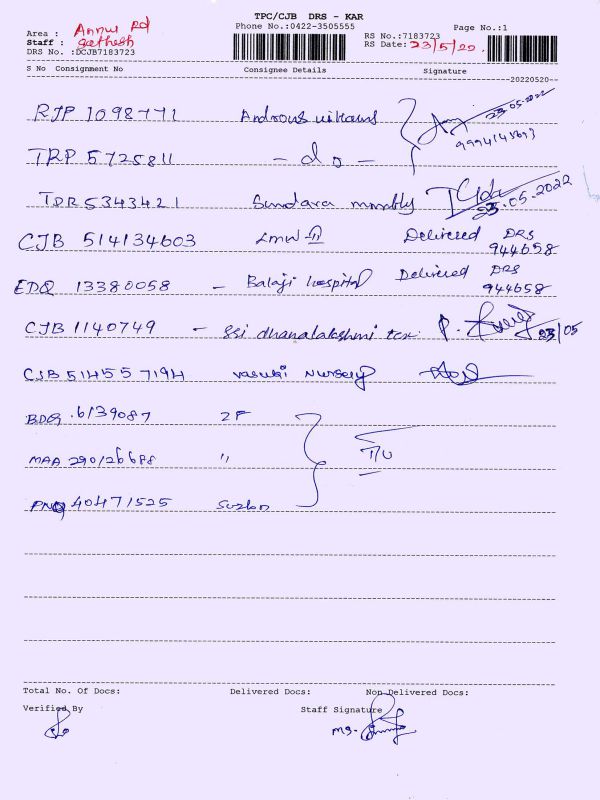 TPC/CJB DRS - KAR
Phone No.:0422-3505555
Page No.:1
Area : Annur Rd
Staff :
DRS No. :DCJB7183723
RS No.:7183723
RS Date: 23/5/22
S No Consignment No Consignee Details Signature
20220520
RJP 1098771 Androus 23.05.2022
9994143693
TRP 5725811 - do -
TDR 5343421 Sundara 23.05.2022
CJB 514134603 LMW Delivered DRS
944658
EDQ 13380058 - Balaji hospital Delivered DRS
944658
CJB 1140749 - Sri dhanalakshmi tex. P. 23/05
CJB 514557194 Vasuki Nursery
BDQ 6139087 ZF
MAA 290126688 "
T/U
PNQ 40471525 Suzlon
Total No. Of Docs: Delivered Docs: Non Delivered Docs:
Verified By Staff Signature